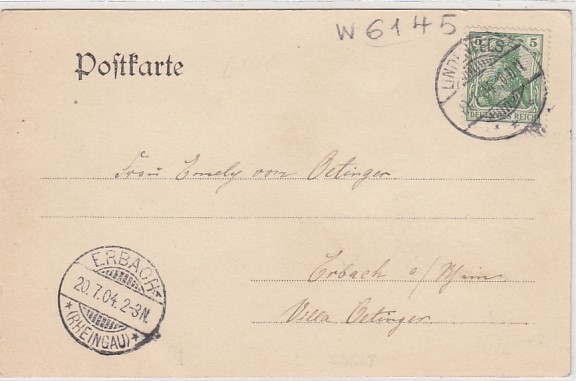 W 6145
Postkarte
LINDENFELS
5
DEUTSCHES REICH
Frau Emely von Oetinger
Erbach a/Rhein
Villa Oetinger
ERBACH
20.7.04.2-3N.
*(RHEINGAU)*